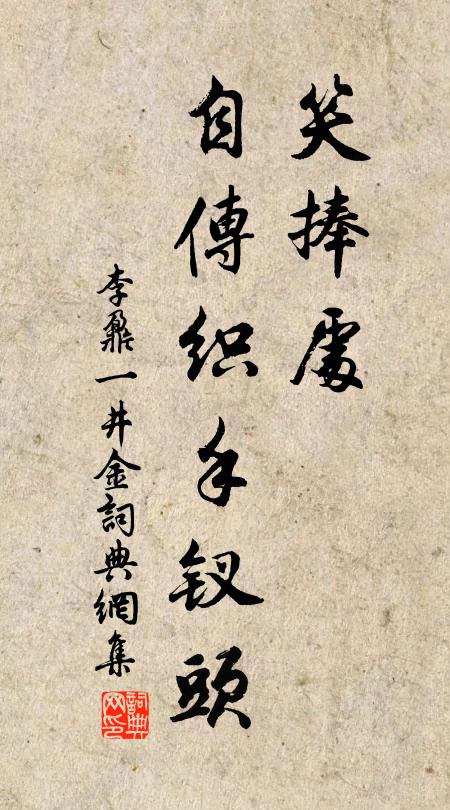 笑捧處
自傳织手钗頭
李鼐一井金詞典網集
詞典网印